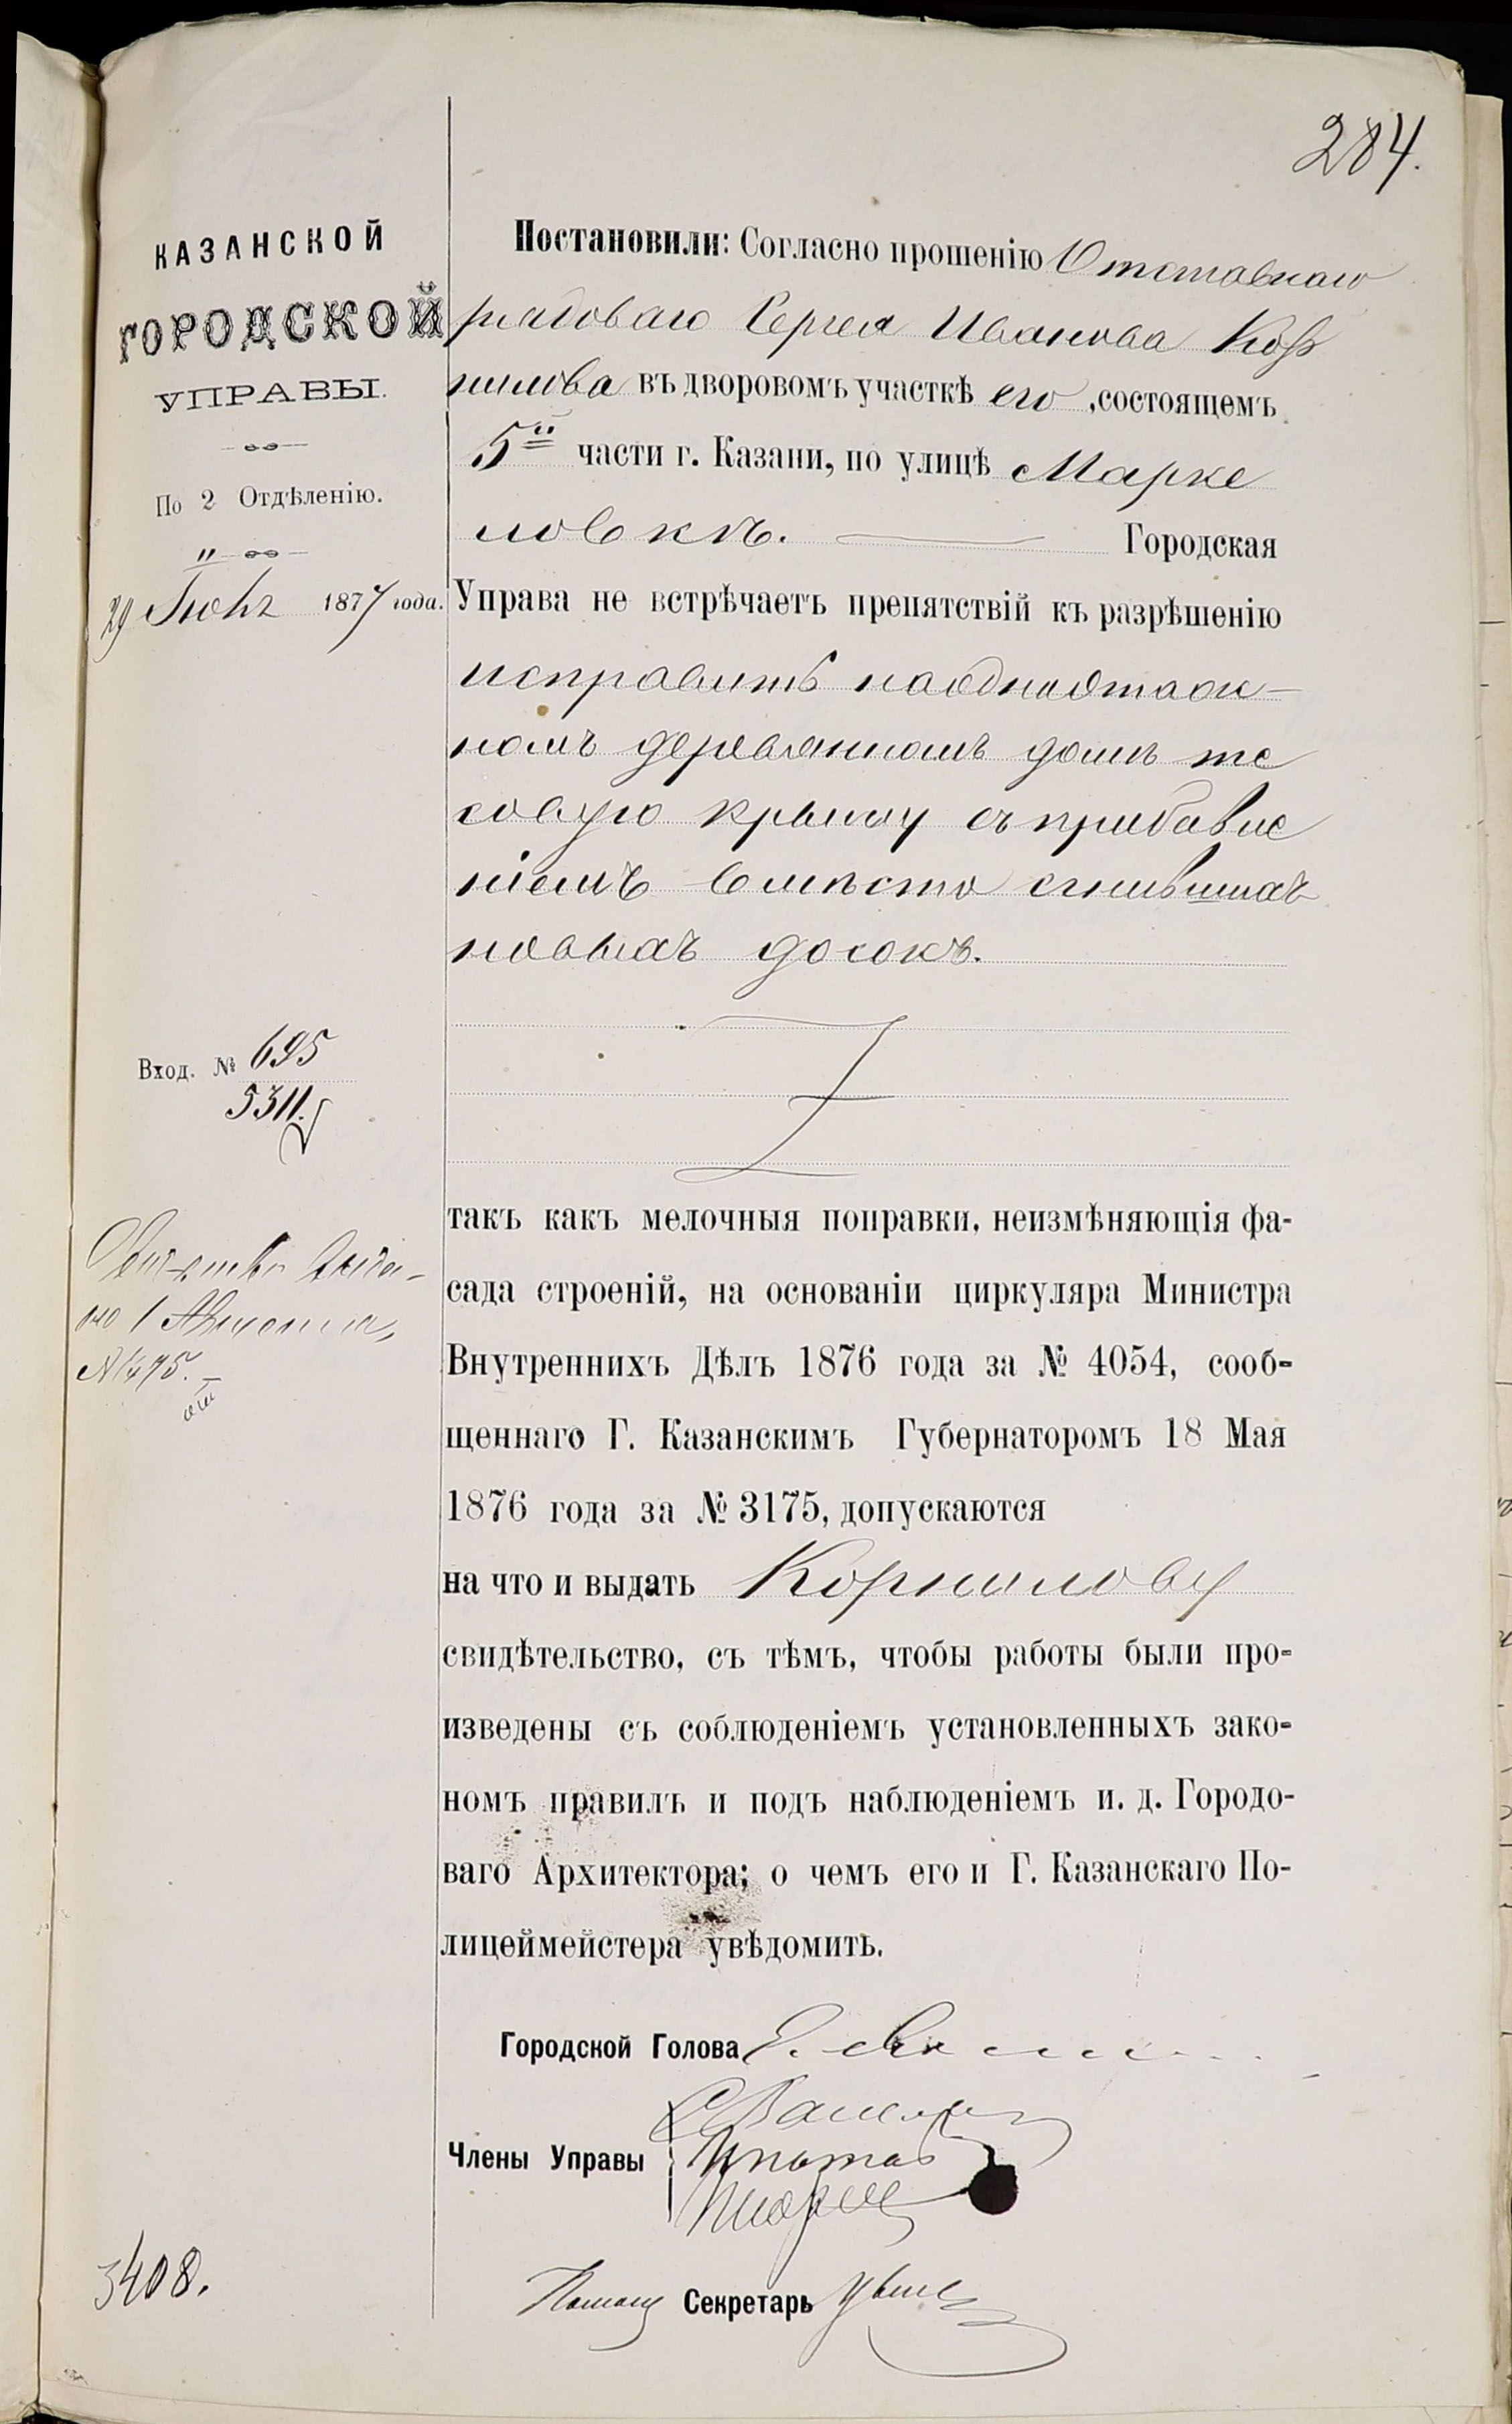 284.
КАЗАНСКОЙ
ГОРОДСКОЙ
УПРАВЫ.
По 2 Отдѣленію.
29 Іюля 1877 года.
Вход. № 695
5311.
Свид-тво выда-
но 1 Августа,
Постановили: Согласно прошенію Отставнаго
рядоваго Сергея Иванова Кор
нилова въ дворовомъ участкѣ его, состоящемъ
5й части г. Казани, по улицѣ Марке
ловкѣ. Городская
Управа не встрѣчаетъ препятствій къ разрѣшенію
исправить наодноэтаж-
номъ деревянномъ домѣ те
совую крышу съ прибавле
ніемъ вмѣсто сгнившихъ
новыхъ досокъ.
такъ какъ мелочныя поправки, неизмѣняющія фа-
сада строеній, на основаніи циркуляра Министра
Внутреннихъ Дѣлъ 1876 года за № 4054, сооб-
щеннаго Г. Казанскимъ Губернаторомъ 18 Мая
1876 года за № 3175, допускаются
на что и выдать Корнилову
свидѣтельство, съ тѣмъ, чтобы работы были про-
изведены съ соблюденіемъ установленныхъ зако-
номъ правилъ и подъ наблюденіемъ и. д. Городо-
ваго Архитектора; о чемъ его и Г. Казанскаго По-
лицеймейстера увѣдомить.
Городской Голова
Члены Управы
Помощ Секретарь
3408.